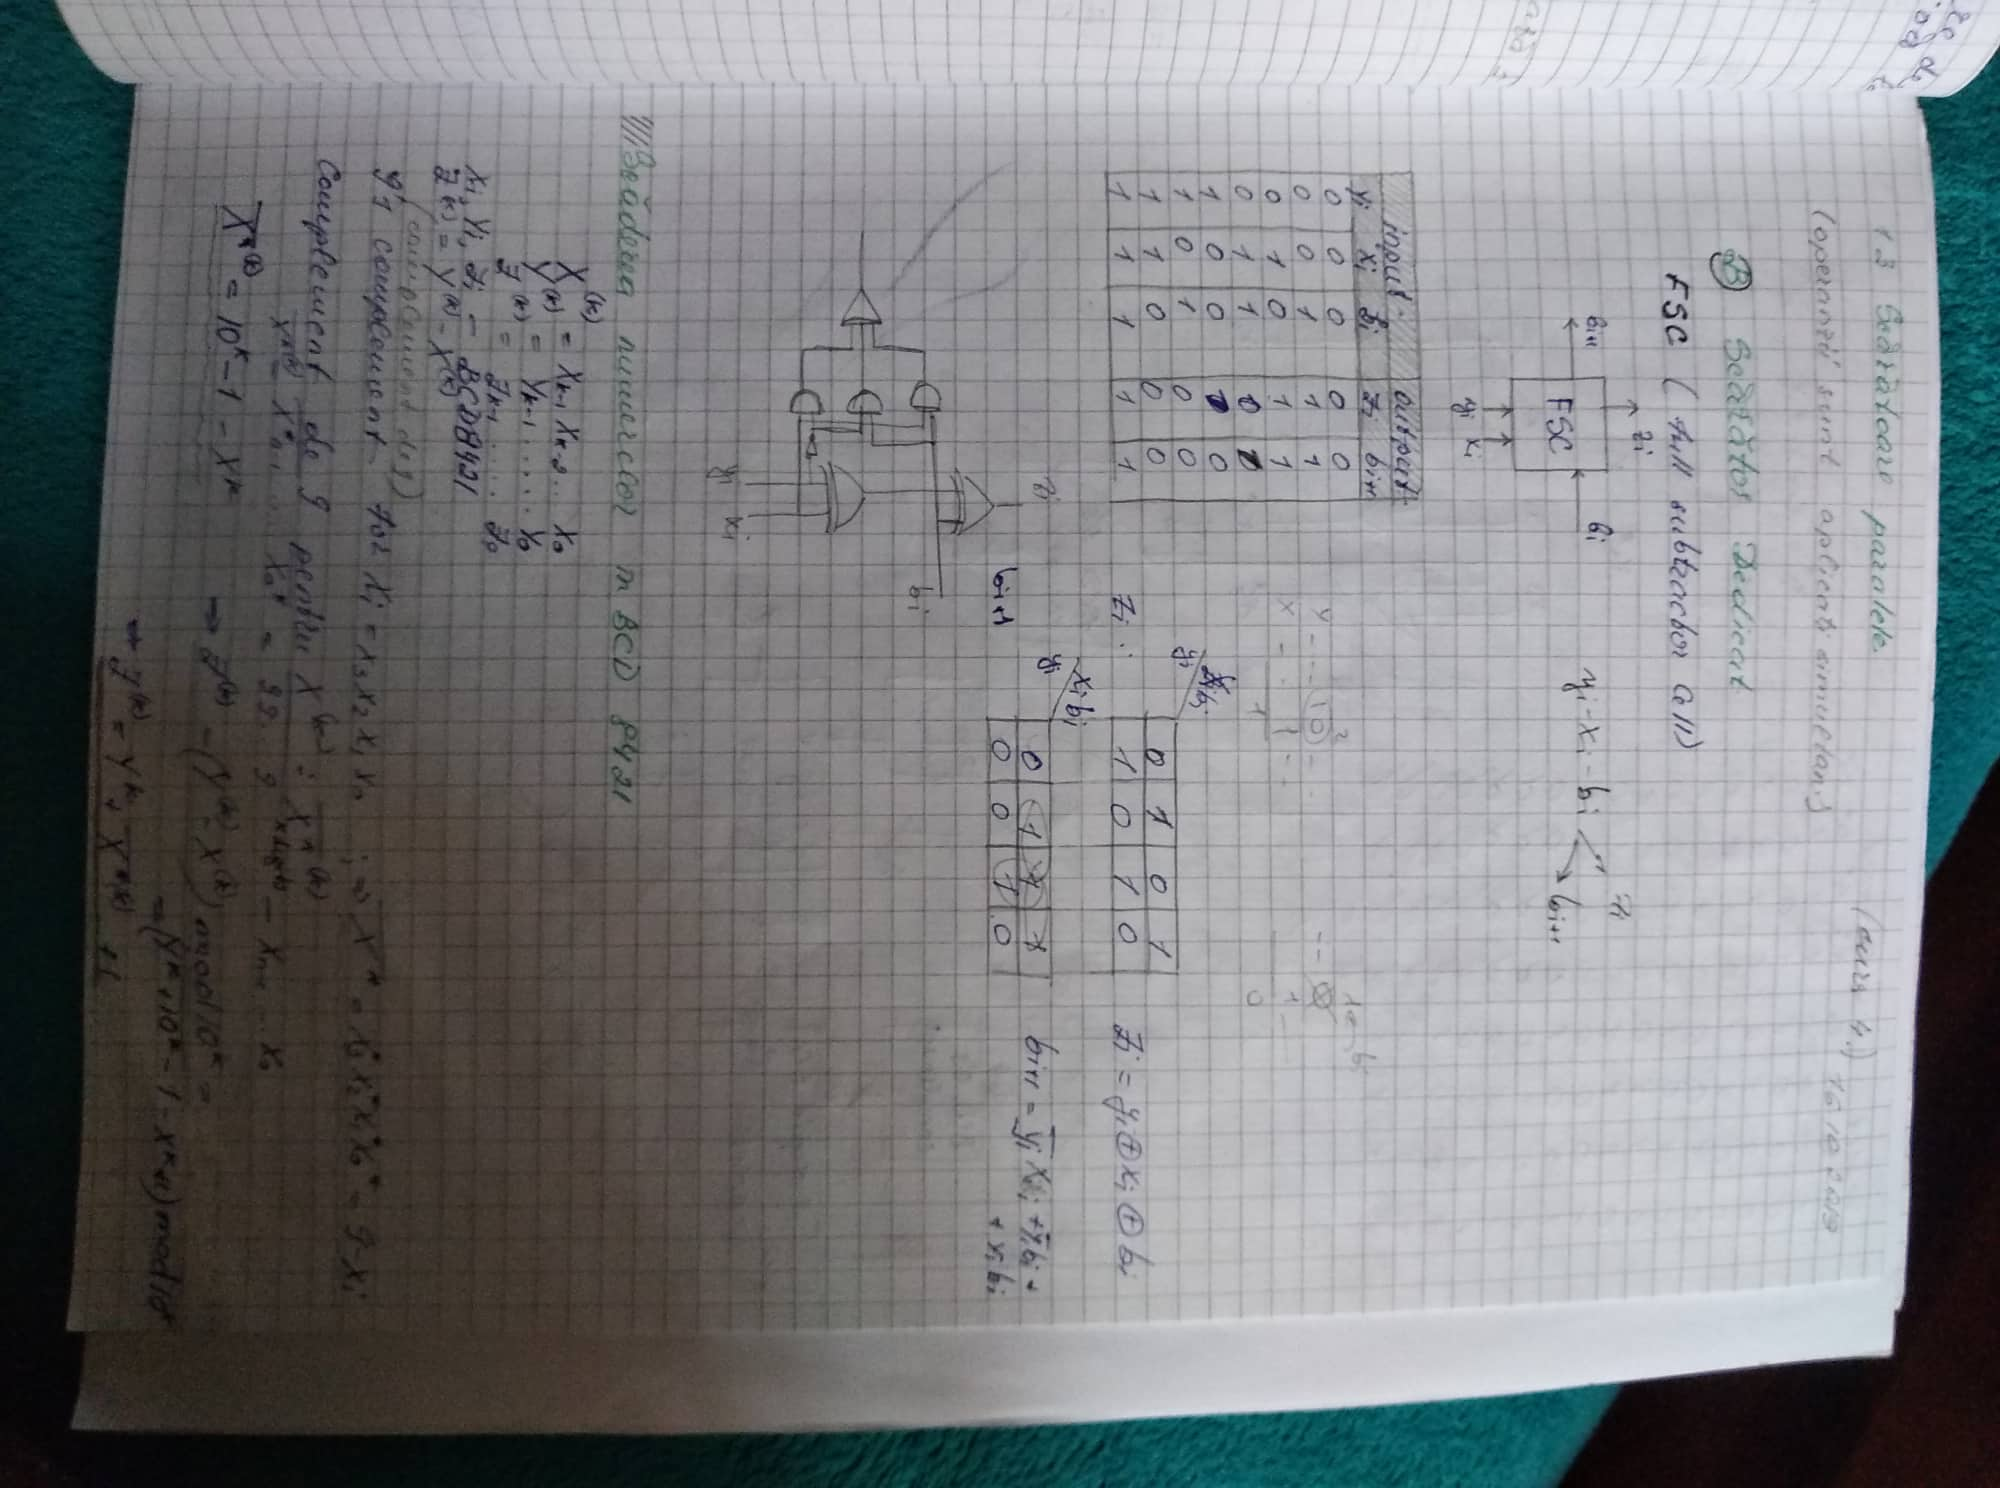 1.3 Scăzătoare paralele. (curs 4.) 16.10.2019
(operanzii sunt aplicați simultan)
(B) Scăzător Dedicat
FSC (full subtractor cell)
zi
bi+1 FSC bi
yi xi
yi - xi - bi
zi
bi+1
input output
yi xi bi zi bi+1
0 0 0 0 0
0 0 1 1 1
0 1 0 1 1
0 1 1 0 1
1 0 0 1 0
1 0 1 0 0
1 1 0 0 0
1 1 1 1 1
zi:
yi xibi
0 1 0 1
1 0 1 0
zi = yi ⊕ xi ⊕ bi
bi+1
yi xibi
0 1 1 1
0 0 1 0
bi+1 = y̅i xi + y̅i bi +
+ xi bi
zi
bi
yi xi
Scăderea numerelor în BCD 8421
X(k) = Xk-1 Xk-2 .. X0
Y(k) = Yk-1 ..... Y0
Z(k) = Zk-1 ..... Z0
Xi, Yi, Zi - BCD8421
Z(k) = Y(k) - X(k)
(complement de 9)
9's complement for Xi = x3 x2 x1 x0
= 9 - Xi
Complement de 9 pentru X(k) :
= 99..9 - Xk-1 ... X0
X*(k) = 10^k - 1 - X^k
→ Z(k) = (Y(k) - X(k)) mod 10^k =
= (Y^k + 10^k - 1 - X^k + 1) mod 10^k